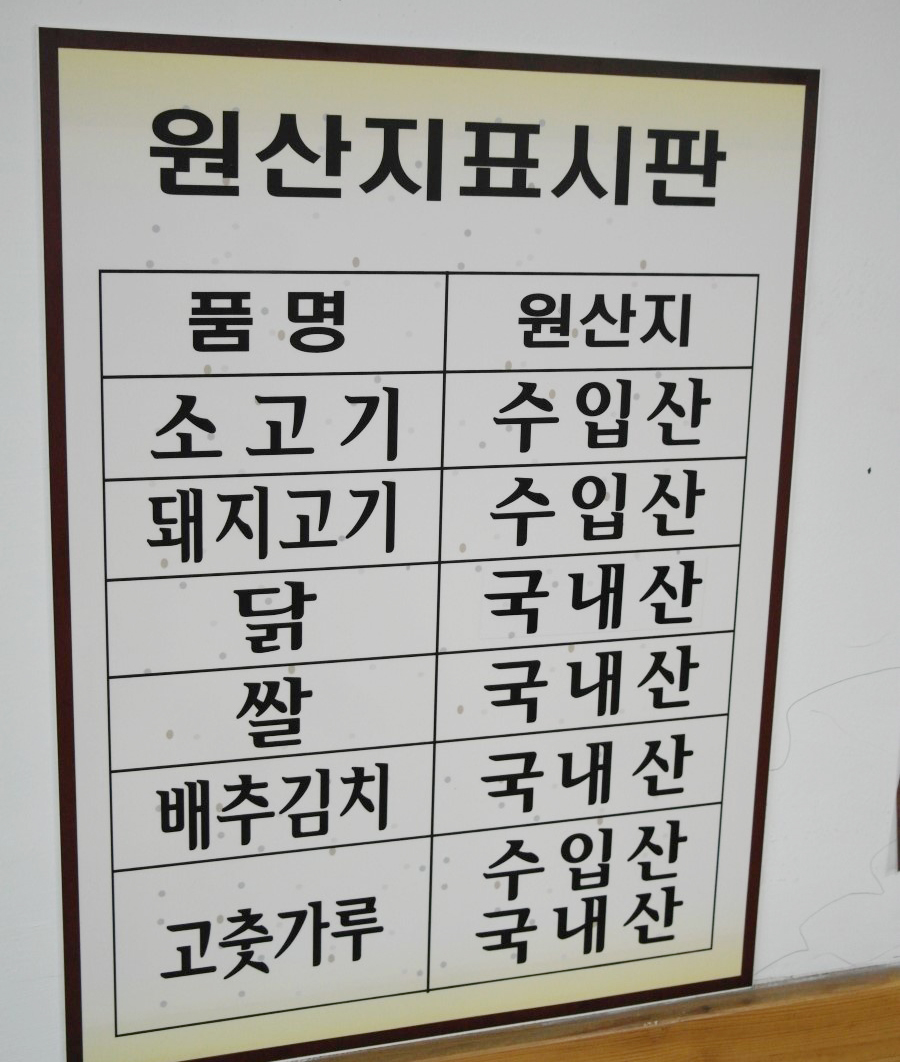 원산지표시판
품 명 원산지
소 고 기 수 입 산
돼지고기 수 입 산
닭 국 내 산
쌀 국 내 산
배추김치 국 내 산
고춧가루 수 입 산
국 내 산